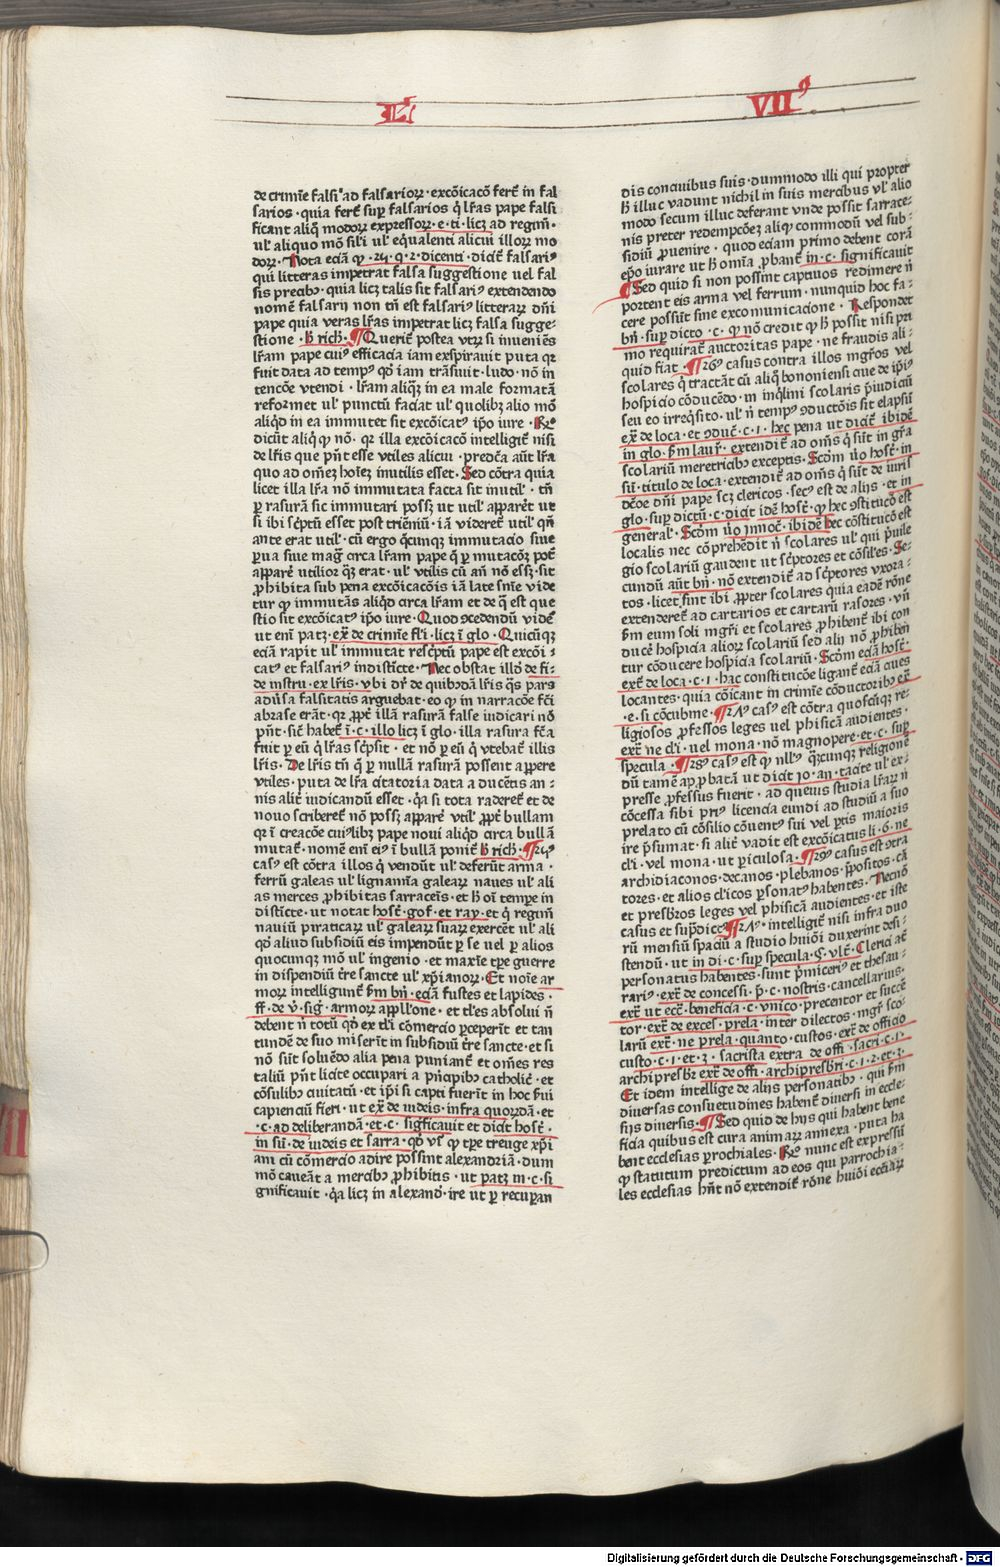 L' VII⁹
de crimīe falsi·ad falsarioꝝ·excōicacō fert̄ in fal
sarios·quia fert̄ suꝑ falsarios q̇ lr̄as pape falsi
ficant aliq̇ modoꝝ expressoꝝ·e·ti·licꝫ ad regim̄·
ul' aliquo mō sil'i ul' eq̇ualenti alicui illoꝝ mo
doꝝ·Nota eciā ꝙ·24·q·2·dicenti·dicit̄ falsari⁹
qui litteras impetrat falsa suggestione uel fal
sis precibꝫ·quia licꝫ talis sit falsari⁹ extendendo
nomē falsarij non tn̄ est falsari⁹ litteraꝝ dn̄i
pape quia veras lr̄as impetrat licꝫ falsa sugge⸗
stione·h̄ rich̄·¶Querit̄ postea vtꝝ si inueniēs
lr̄am pape cui⁹ efficacia iam exspirauit puta qꝛ
fuit data ad temp⁹ qd̄ iam trāsiuit·ludo·nō in
tencōe vtendi·lr̄am aliq̄ꝫ in ea male formatā
reformet ul' punctū faciat ul' quolibꝫ alio mō
aliqd̄ in ea immutet sit excōicat⁹ ip̄o iure·Rº
dicūt aliq̇ ꝙ nō·qꝛ illa excōicacō intelligit̄ nisi
de lr̄is que pn̄t esse vtiles alicui·predc̄a aūt lr̄a
quo ad om̄eꝫ hoīeꝫ inutilis esset·Sed cōtra quia
licet illa lr̄a nō immutata facta sit inutil'·tn̄
ꝑ rasurā sic immutari possꝫ ut util' apparēt ut
si ibi sc̄ptū esset post triēniū·iā videret̄ util' qn̄
ante erat util'·cū ergo q̄cunqꝫ immutacio siue
ꝑua siue maḡ circa lr̄am pape q̄ ꝑ mutacōꝫ pōt
apparē utilior q̄ꝫ erat·ul' vtilis cū an̄ nō essꝫ·sit
ꝓhibita sub pena excōicacōis iā late sn̄ie vide
tur ꝙ immutās aliqd̄ circa lr̄am et de q̄ est que
stio sit excōicat⁹ ip̄o iure·Quod ꝯcedendū videt̄
ut eni patꝫ·ex̄ de crimīe fl'i·licꝫ ī glo·Quicūqꝫ
eciā rapit ul' immutat resc̄ptū pape est excōi⸗
cat⁹ et falsari⁹ indisticte·Nec obstat illđ de fi⸗
de instru·ex lr̄is·vbi dr̄ de quibꝰdā lr̄is q̄s pars
aduſa falsitatis arguebat·eo ꝙ in narracōe fc̄i
abrase erāt·qꝛ ꝓpt̄ illā rasurā false iudicari nō
pn̄t·sic̄ habet̄ ī·c·illo licꝫ ī glo·illa rasura fc̄a
fuit ꝑ eū q̇ lr̄as sc̄psit·et nō ꝑ eū q̇ vtebat̄ illis
lr̄is·De lr̄is tn̄ q̄ ꝑ nullā rasurā possent appere
vtiles·puta de lr̄a citatoria data a ducētis an⸗
nis alit̄ iudicandū esset·q̇a si tota raderet̄ et de
nouo scriberet̄ nō possꝫ apparē util' ꝓpt̄ bullam
qꝛ ī creacōe cui⁹libꝫ pape noui aliqd̄ circa bullā
mutat̄·nomē em̄ ei⁹ ī bullā ponit̄ h̄ rich̄·¶24⁹
cas⁹ est cōtra illos q̇ vendūt ul' deferūt arma·
ferrū galeas ul' lignamīa galeaꝝ naues ul' ali
as merces ꝓhibitas sarraceīs·et h̄ oī tempe in
disticte·ut notat host̄·gof·et ray·et q̇ regim̄
nauiū piraticaꝝ ul' galeaꝝ suaꝝ exercēt ul' ali
qd̄ aliud subsidiū eis impendūt ꝑ se vel ꝑ alios
quocunqꝫ mō ul' ingenio·et maxīe tꝑe guerre
in dispendiū t̄re sancte ul' xp̄ianoꝝ·Et noīe ar
moꝝ intelligunt̄ ẜm bn̄·eciā fustes et lapides·
ff·de v̄·siḡ·armoꝝ appl'lone·et tl'es absolui n̄
debent n̄ totū qd̄ ex tl'i cōmercio ꝑceperīt et tan
tundē de suo miserīt in subsidiū t̄re sancte·et si
nō sūt soluēdo alia pena puniant̄ et om̄es res
taliū pn̄t licite occupari a pn̄cipibꝫ catholic̄·et
cōsulibꝫ ciuitatū·et ip̄i si capti fuerīt in hoc ẜui
capienciū fieri·ut ex̄ de iudeis·infra quordā·et
·c·ad deliberandā·et·c·sigficauit et dicit host̄·
in sū·de iudeis et sarra·qd̄ v̄ꝫ ꝙ tꝑe treuge xp̄i
ani cū cōmercio adire possint alexandriā·dum
mō caueāt a mercibꝫ ꝓhibitis·ut patꝫ in·c·si
gnificauit·q̇a licꝫ in alexand̄·ire ut ꝑ recuꝑan
dis conciuibus suis·dummodo illi qui propter
h̄ illuc vadunt nichil in suis mercibus vl' alio
modo secum illuc deferant vnde possit sarrace⸗
nis preter redempcōeꝫ aliq̇ commodū vel sub⸗
sidiū ꝓuenire·quod eciam primo debent corā
ep̄o iurare ut h̄ omīa ꝓbant̄ in·c·significauit
¶Sed quid si non possint captiuos redimere n̄
portent eis arma vel ferrum·nunquid hoc fa⸗
cere possūt sine excomunicacione·Respondet
bn̄·suꝑ dicto·c·ꝙ nō credit ꝙ h̄ possit nisi pri
mo requirat̄ auctoritas pape·ne fraudis ali⸗
quid fiat·¶26⁹ casus contra illos mgr̄os vel
scolares q̇ tractāt cū aliq̇ bononiensi ciue de ip̄i⁹
hospicio cōducēdo·in inq̇lini scolaris p̄iudiciū
seu eo irreq̇sito·ul' n̄ temp⁹ ꝯductōis sit elapsū
ex̄ de loca·et ꝯduc̄·c·1·hec pena ut dicit̄ ibidē
in glo·ẜm laur̄·extendit̄ ad om̄s q̇ sūt in gr̄a
scolariū meretricibꝫ exceptis·Scd̄m v̄o host̄·in
sū·titulo de loca·extendit̄ ad om̄s q̇ sūt de iuris
dc̄oe dn̄i pape scꝫ clericos·sec⁹ est de alijs·et in
glo·suꝑ dictū·c·dicit idē host̄·ꝙ hec ꝯstitucō est
general'·Scd̄m v̄o innoc̄·ibidē hec cōstitucō est
localis nec cōprehēdit n̄ scolares ul' qui p̄uile
gio scolariū gaudent ut sc̄ptores et cōsil'es·Se⸗
cundū aūt bn̄·nō extendit̄ ad sc̄ptores vxora⸗
tos·licet sint ibi ꝓpter scolares quia eadē rōne
extenderet̄ ad cartarios et cartarū rasores·vn̄
ẜm eum soli mgr̄i et scolares ꝓhibent̄ ibi con
ducē hospicia alioꝝ scolariū sed alij nō ꝓhiben
tur cōducere hospicia scolariū·Scd̄m eciā host̄·
ext̄ de loca·c·1·hac constitucōe ligant̄ eciā ciues
locantes·quia cōicant in crimīe cōductoribꝫ ex̄
·e·si cōcubine·¶27⁹ cas⁹ est cōtra quoscūqꝫ re⸗
ligiosos ꝓfessos leges vel phisicā audientes·
ext̄ ne cl'i·uel mona·nō magnopere·et·c·suꝑ
specula·¶28⁹ cas⁹ est ꝙ null⁹ q̄cunqꝫ religionē
dū tamē approbatā ut dicit io·an·tacite ul' ex⸗
presse ꝓfessus fuerit·ad queuis studia lr̄aꝝ n̄
cōcessa sibi pri⁹ licencia eundi ad studiū a suo
prelato cū cōsilio cōuent⁹ sui vel ꝑtis maioris
ire p̄sumat·si alit̄ vadit est excōicatus li·6·ne
cl'i·vel mona·ut ꝑiculosa·¶29⁹ casus est ꝯtra
archidiaconos·decanos·plebanos·p̄positos·cā
tores·et alios cl'icos ꝑsonat⁹ habentes·Necnō
et presbr̄os leges vel phisicā audientes·et iste
casus et sup̄dict⁹ ¶27⁹·intelligit̄ nisi infra duo
rū mensiū spaciū a studio hui⁹i duxerint desi⸗
stendū·ut in di·c·suꝑ specula·§·vlt̄·Clerici at̄
personatus habentes·sunt p̄miceri⁹ et thesau⸗
rari⁹·ext̄ de concessi·p̄·c·nostris·cancellarius·
ext̄ ut ecc̄·beneficia·c·vnico·precentor et succē
tor·ext̄ de exces·prela·inter dilectos·mgr̄ sco
larū·ext̄·ne prela·quanto·custos·ext̄ de officio
custo·c·1·et·2·sacrista extra de offi·sacri·c·1·
archipresbr̄ ext̄ de offi·archipresbr̄i·c·1·2·et·3·
Et idem intellige de alijs personatibꝫ·qui ẜm
diuersas consuetudines habent̄ diuersi in eccle⸗
sijs diuersis·¶Sed quid de hijs qui habent bene
ficia quibus est cura animaꝝ annexa·puta ha
bent ecclesias ꝑrochiales·Rº nunc est expressū
ꝙ statutum predictum ad eos qui parrochia⸗
les ecclesias hn̄t nō extendit̄ rōne hui⁹i ecc̄iaꝝ
Digitalisierung gefördert durch die Deutsche Forschungsgemeinschaft - DFG